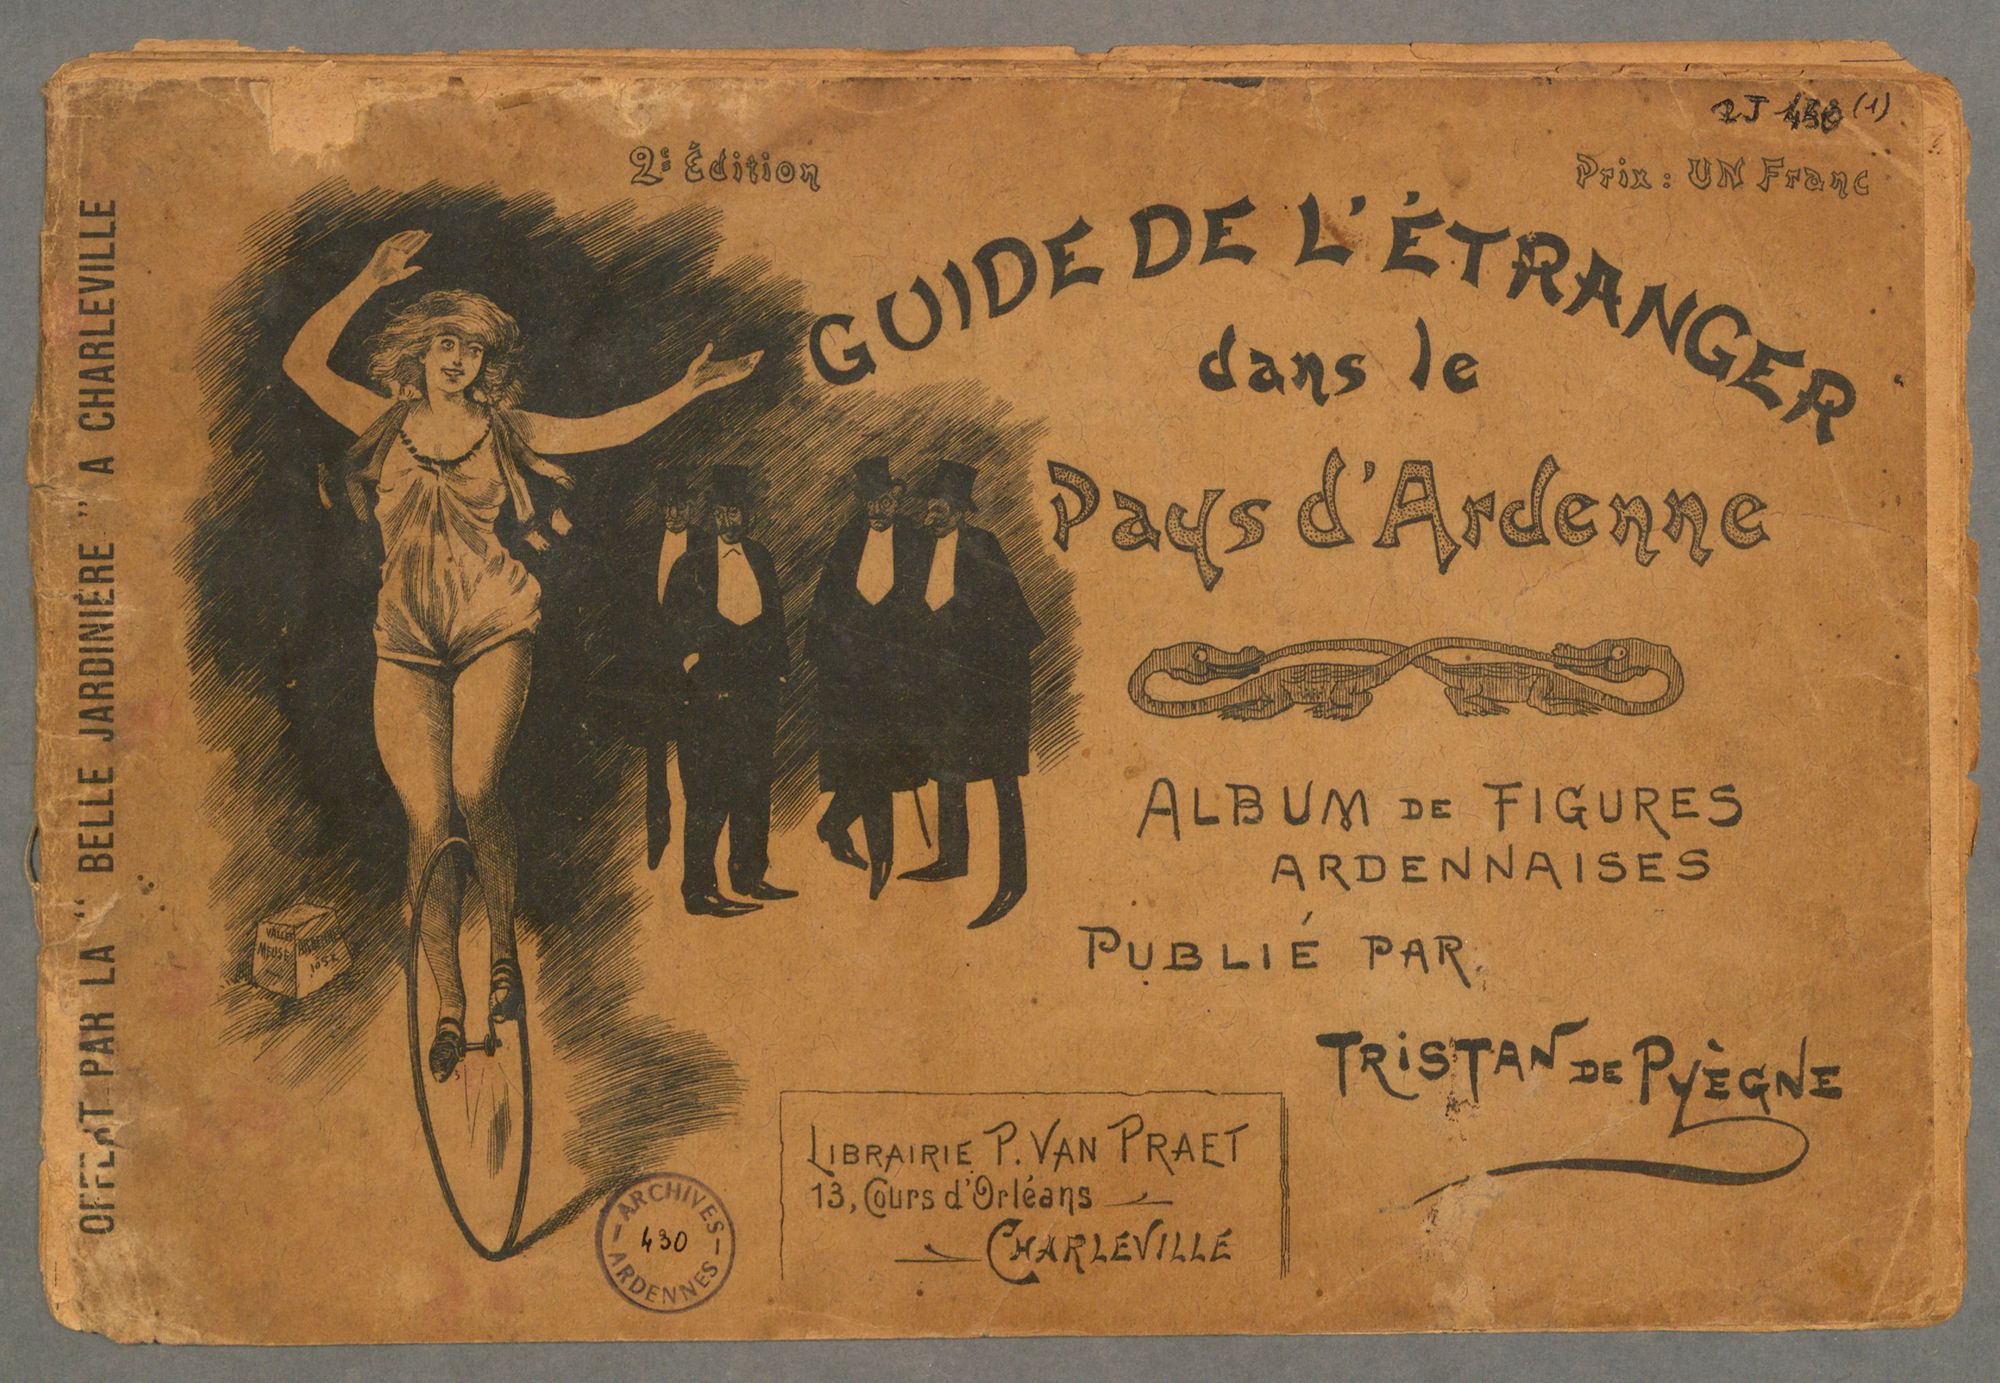 2J 430 (1)
2e Édition
Prix : UN Franc
GUIDE DE L'ÉTRANGER
dans le
Pays d'Ardenne
ALBUM DE FIGURES
ARDENNAISES
PUBLIÉ PAR
TRISTAN DE PYÈGNE
LIBRAIRIE P. VAN PRAET
13, Cours d'Orléans
CHARLEVILLE
OFFERT PAR LA “ BELLE JARDINIÈRE ” A CHARLEVILLE
VALLÉE
MEUSE
ARDENNE
ARCHIVES
430
ARDENNES